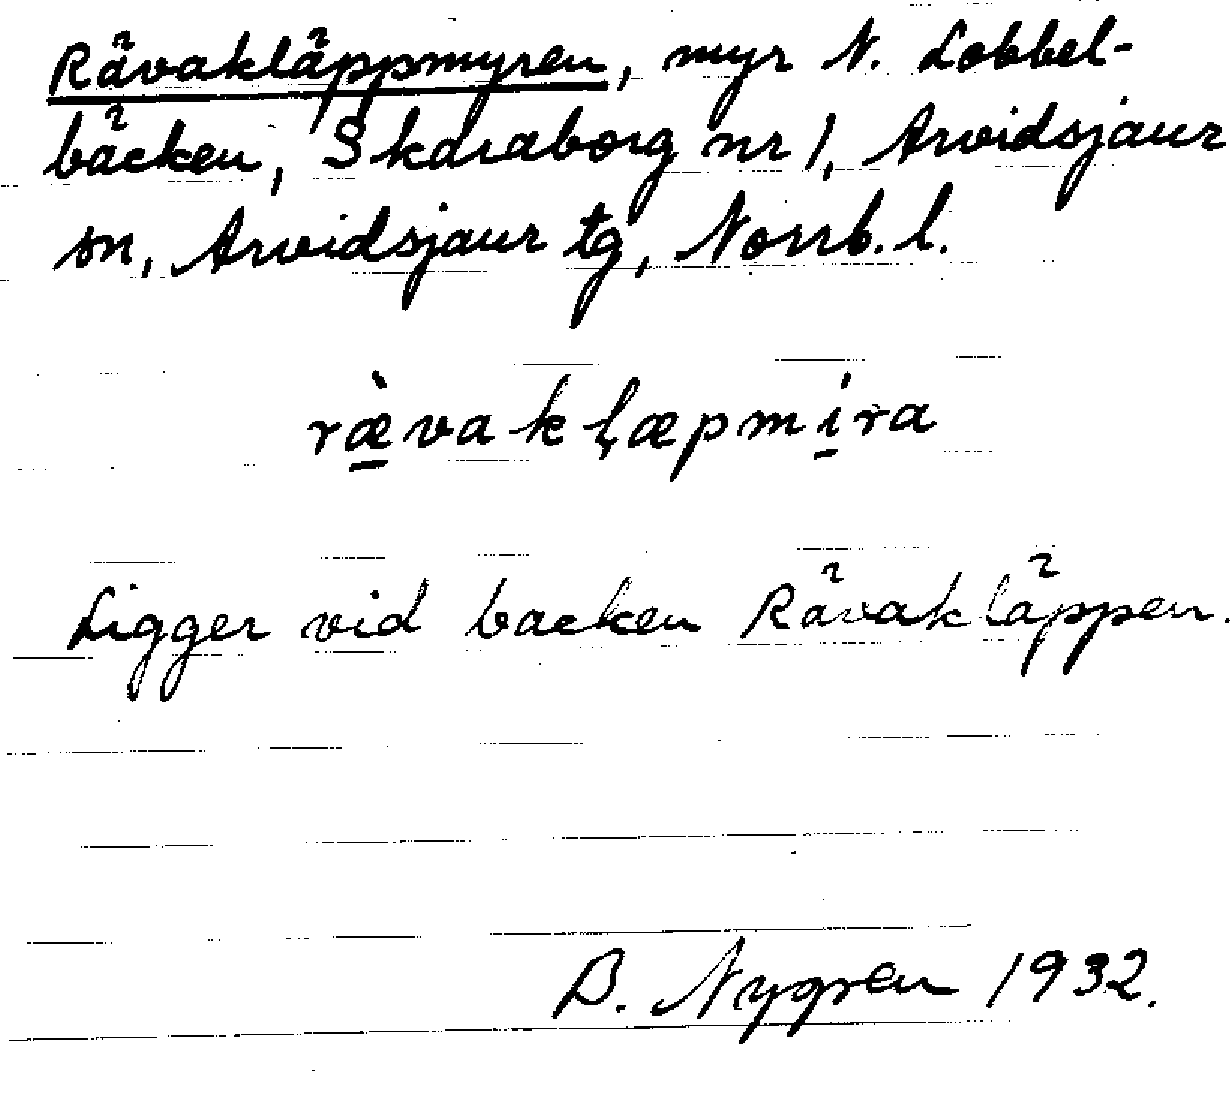 Rävakläppmyren, myr N. Lobbel-
bäcken, Skaraborg nr 1, Arvidsjaur
sn, Arvidsjaur tg, Norrb. l.
ræ̀vakḷæpmíra
Ligger vid backen Rävakläppen.
B. Nygren 1932.